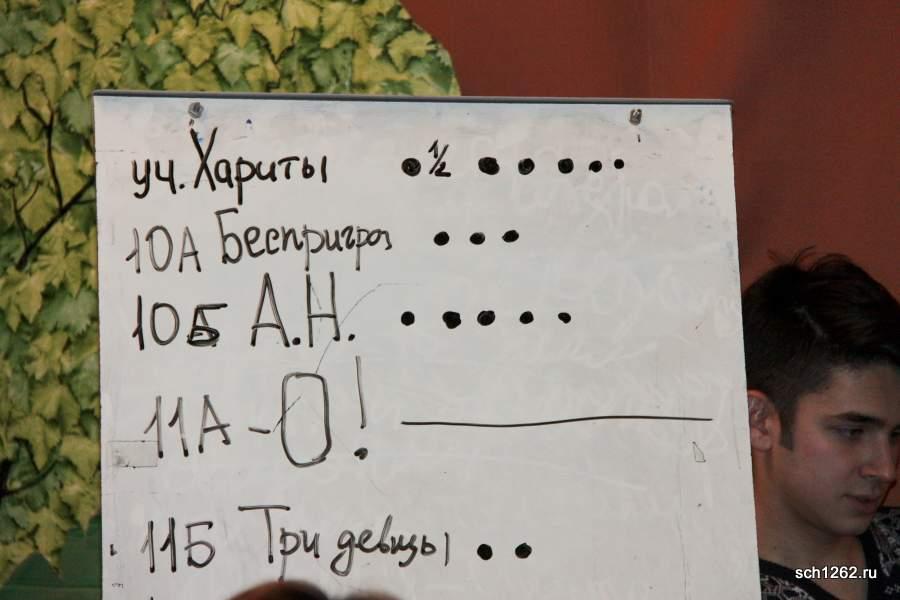 уч. Хариты ●½ ● ● ● ● ●
10А Бесприગроз ● ● ●
10Б А.Н. ● ● ● ● ●
11А - О!
11Б Три девицы ● ●
sch1262.ru